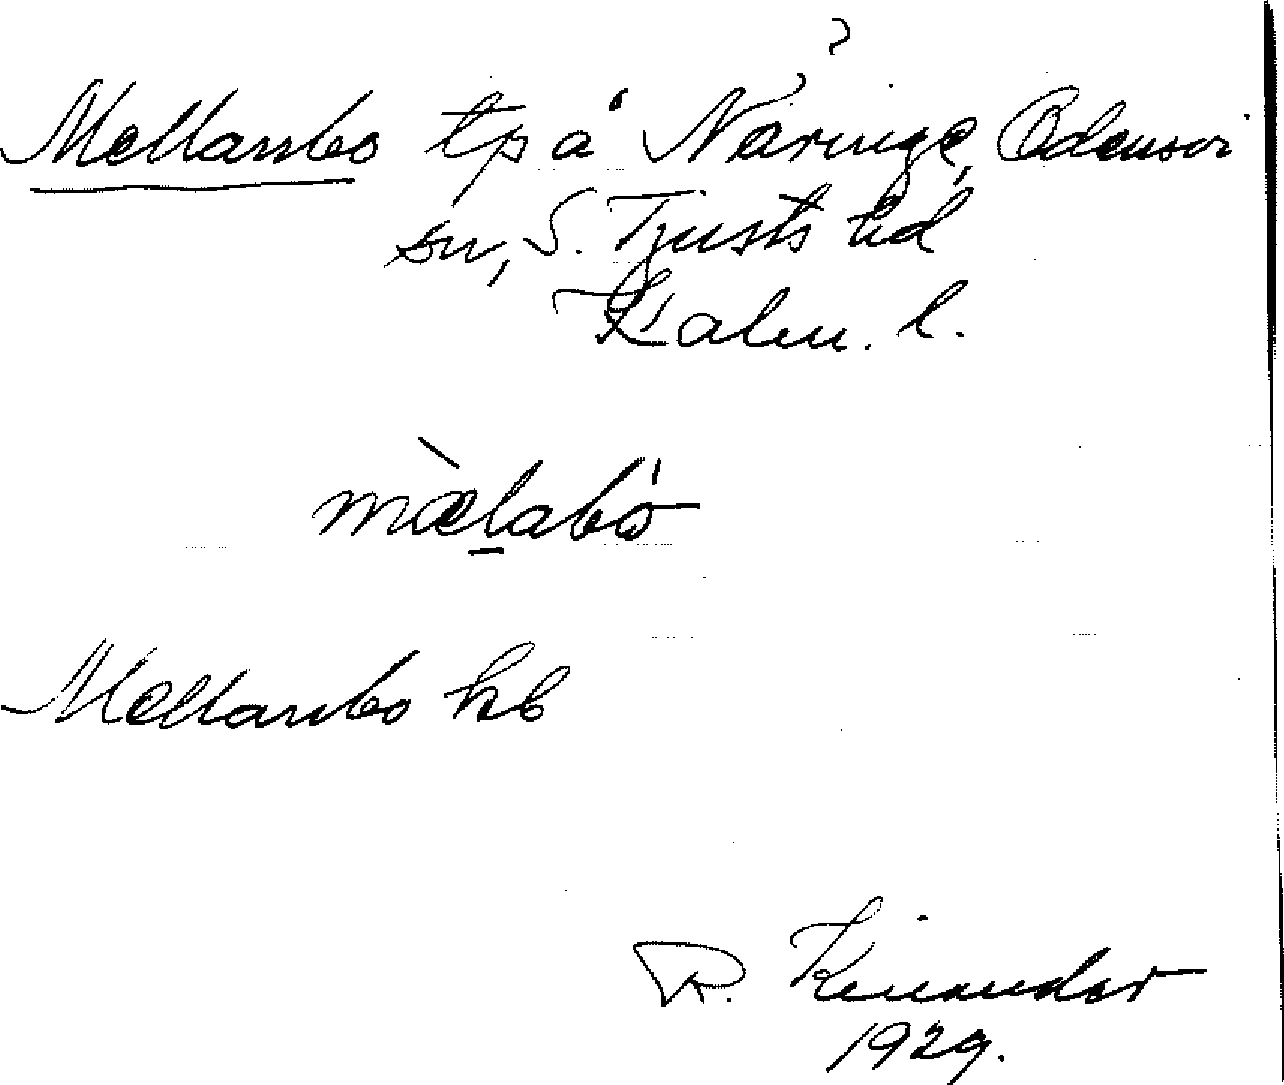 ?
Mellanbo tp å Näringe, Odensvi
sn, S. Tjusts hd
Kalm. l.
mæ̀labó
Mellanbo hb
R. Kinander
1929.